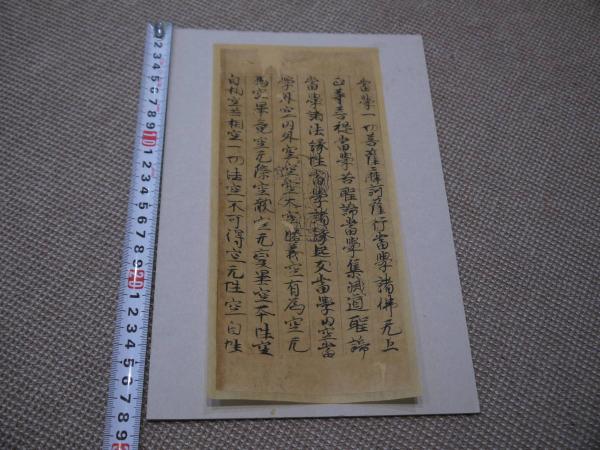 當學一切菩薩摩訶薩行當學諸佛无上
正等菩提當學苦聖諦當學集滅道聖諦
當學諸法緣性當學諸緣起支當學內空當
學外空內外空空空大空勝義空有為空无
為空畢竟空无際空散空无變異空本性空
自相空共相空一切法空不可得空无性空自性
1 2 3 4 5 6 7 8 9 10 1 2 3 4 5 6 7 8 9 20 1 2 3 4 5 6 7 8 9